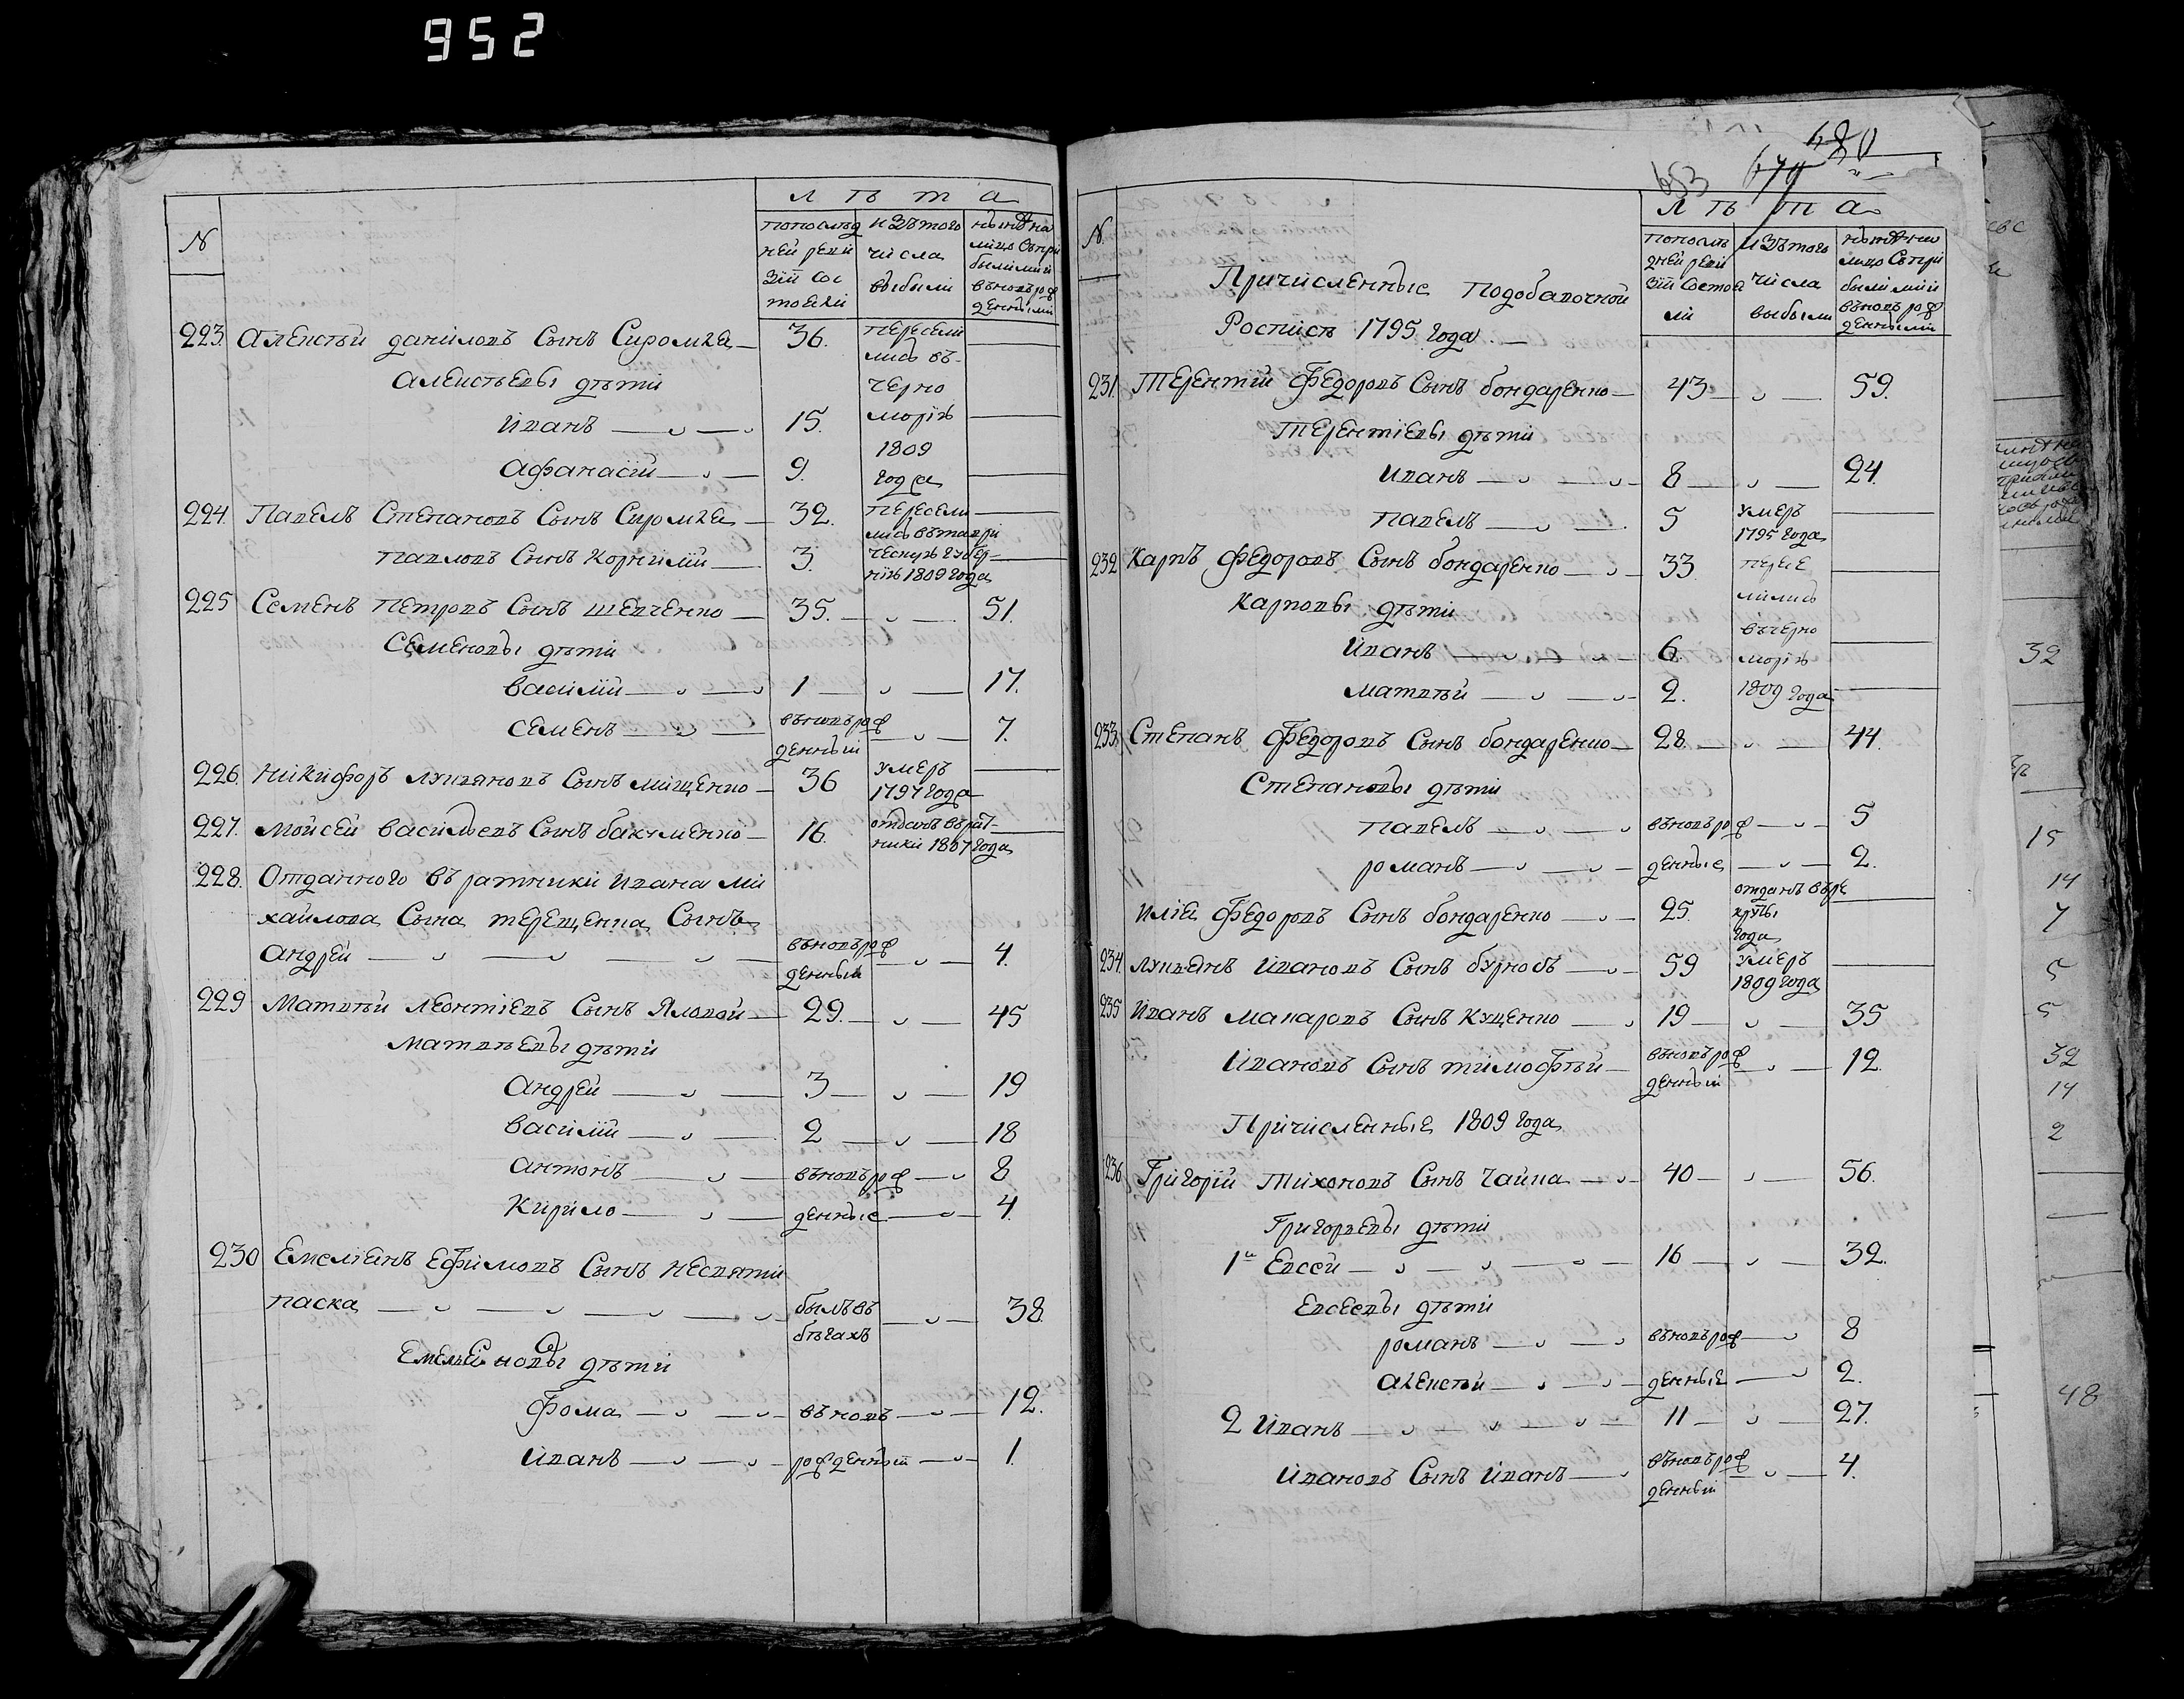 952
Л ѣ т а
N
попослед
ней реви
зіи сос
тояли
изътого
числа
выбыли
нынѣ на
лицо съпри
былыми и
вьновьрож
денными
223. Алексѣй Данилов Сынъ Сиромля 36. пересели
лись въ
Алексѣевы дѣти черно
Иванъ 15. морію
1809
Афанасій 9. года
224. Павелъ Степановъ Сынъ Сиромля 32. пересели
лись въ таври
Павловъ Сынъ Корнилій 3. ческую губер
нію 1809 года
225 Семенъ Петровъ Сынъ Шевченко 35. 51.
Семеновы дѣти
Василій 1 17.
Семенъ вьновьрож 7.
денный
226. Никифоръ Лукяновъ Сынъ Мищенко 36 умеръ
1797 года
227. Мойсей Васильевъ Сынъ Бакуменко 16. отданъ въ рат
ники 1807 года
228. Отданного въ ратники Ивана Ми
хайлова Сына Терещенка Сынъ
Андрей вьновьрож 4.
денный
229 Матвѣй Леонтіевъ Сынъ Яловой 29. 45
Матвѣевы дѣти
Андрей 3 19
Василій 2 18
Антонъ вьновьрож 8
Кирило денные 4.
230 Емеліянъ Ефимовъ Сынъ Несвяти
паска былъ въ 38.
бѣгахъ
Емельяновы дѣти
Фома вьновь 12.
Иванъ рожденныи 1.
680
679
653
Л ѣ т а
N.
попослѣ
дней реви
зіи состоя
ли
изътого
числа
выбыли
нынѣ на
лицо съпри
былыми и
вьновьрож
денными
Причисленные подобавочной
Росписи 1795 года.
231. Терентій Федоровъ Сынъ Бондаренко 43 59.
Терентіевы дѣти
Иванъ 8 24.
Павелъ 5 умеръ
1795 года
232 Карпъ Федоровъ Сынъ Бондаренко 33. пересе
лились
Карповы дѣти въ черно
Иванъ 6. морію
Матвѣй 2. 1809 года
233 Степанъ Федоровъ Сынъ Бондаренко 28. 44.
Степановы дѣти
Павелъ вьновьрож 5
Романъ денные 2.
Илія Федоровъ Сынъ Бондаренко 25. отданъ въ ре
круты
года
234. Лукьянъ Ивановъ Сынъ Бурнобъ 59 умеръ
1809 года
235 Иванъ Макаровъ Сынъ Куценко 19 35
Ивановъ Сынъ Тимофѣй вьновьрож 12.
денный
Причисленные 1809 года
236 Григорій Тихоновъ Сынъ Чайка 40 56.
Григорьевы дѣти
1й Евсей 16 32.
Евсеевы дѣти
Романъ вьновьрож 8
Алексѣй денные 2.
2 Иванъ 11 27.
Ивановъ Сынъ Иванъ вьновьрож 4.
денный
32
15
14
7
5
5
32
14
2
48